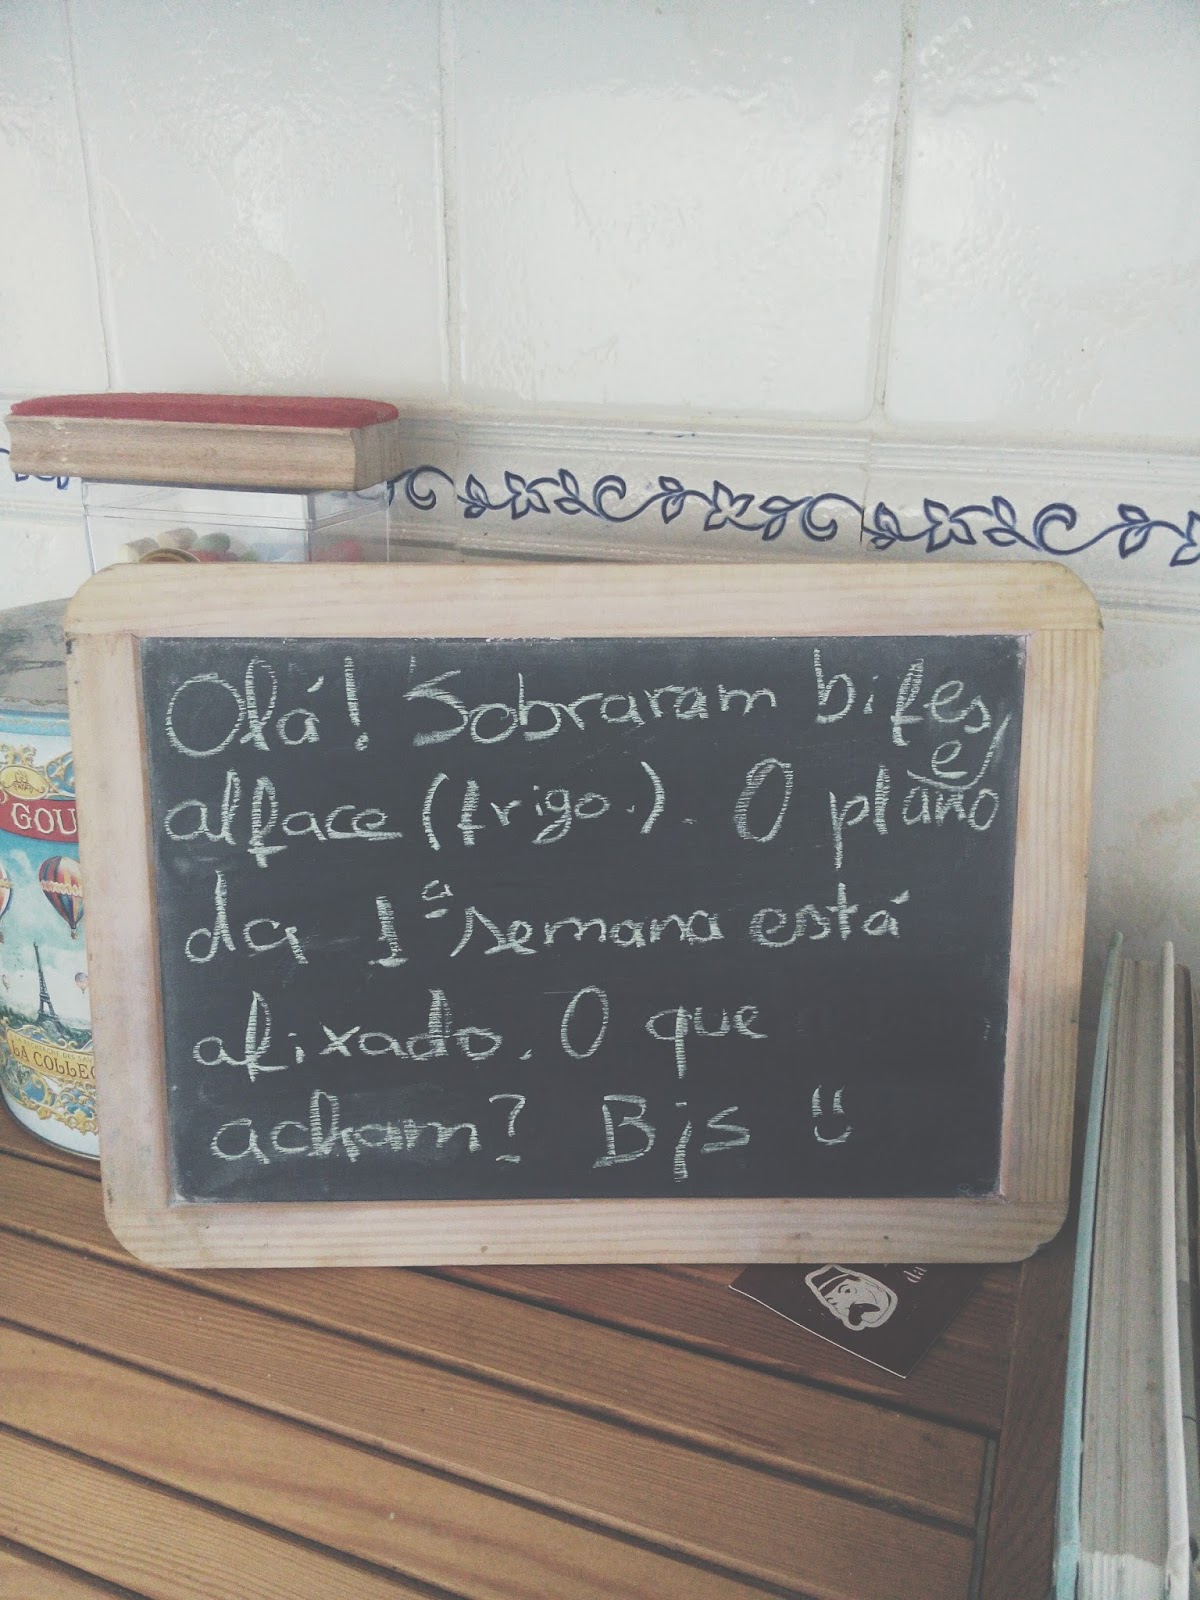 Olá! Sobraram bifes e
alface (frigo.). O plano
da 1ª semana está
afixado. O que
acham? Bjs
GOU
LA COLLEC
da